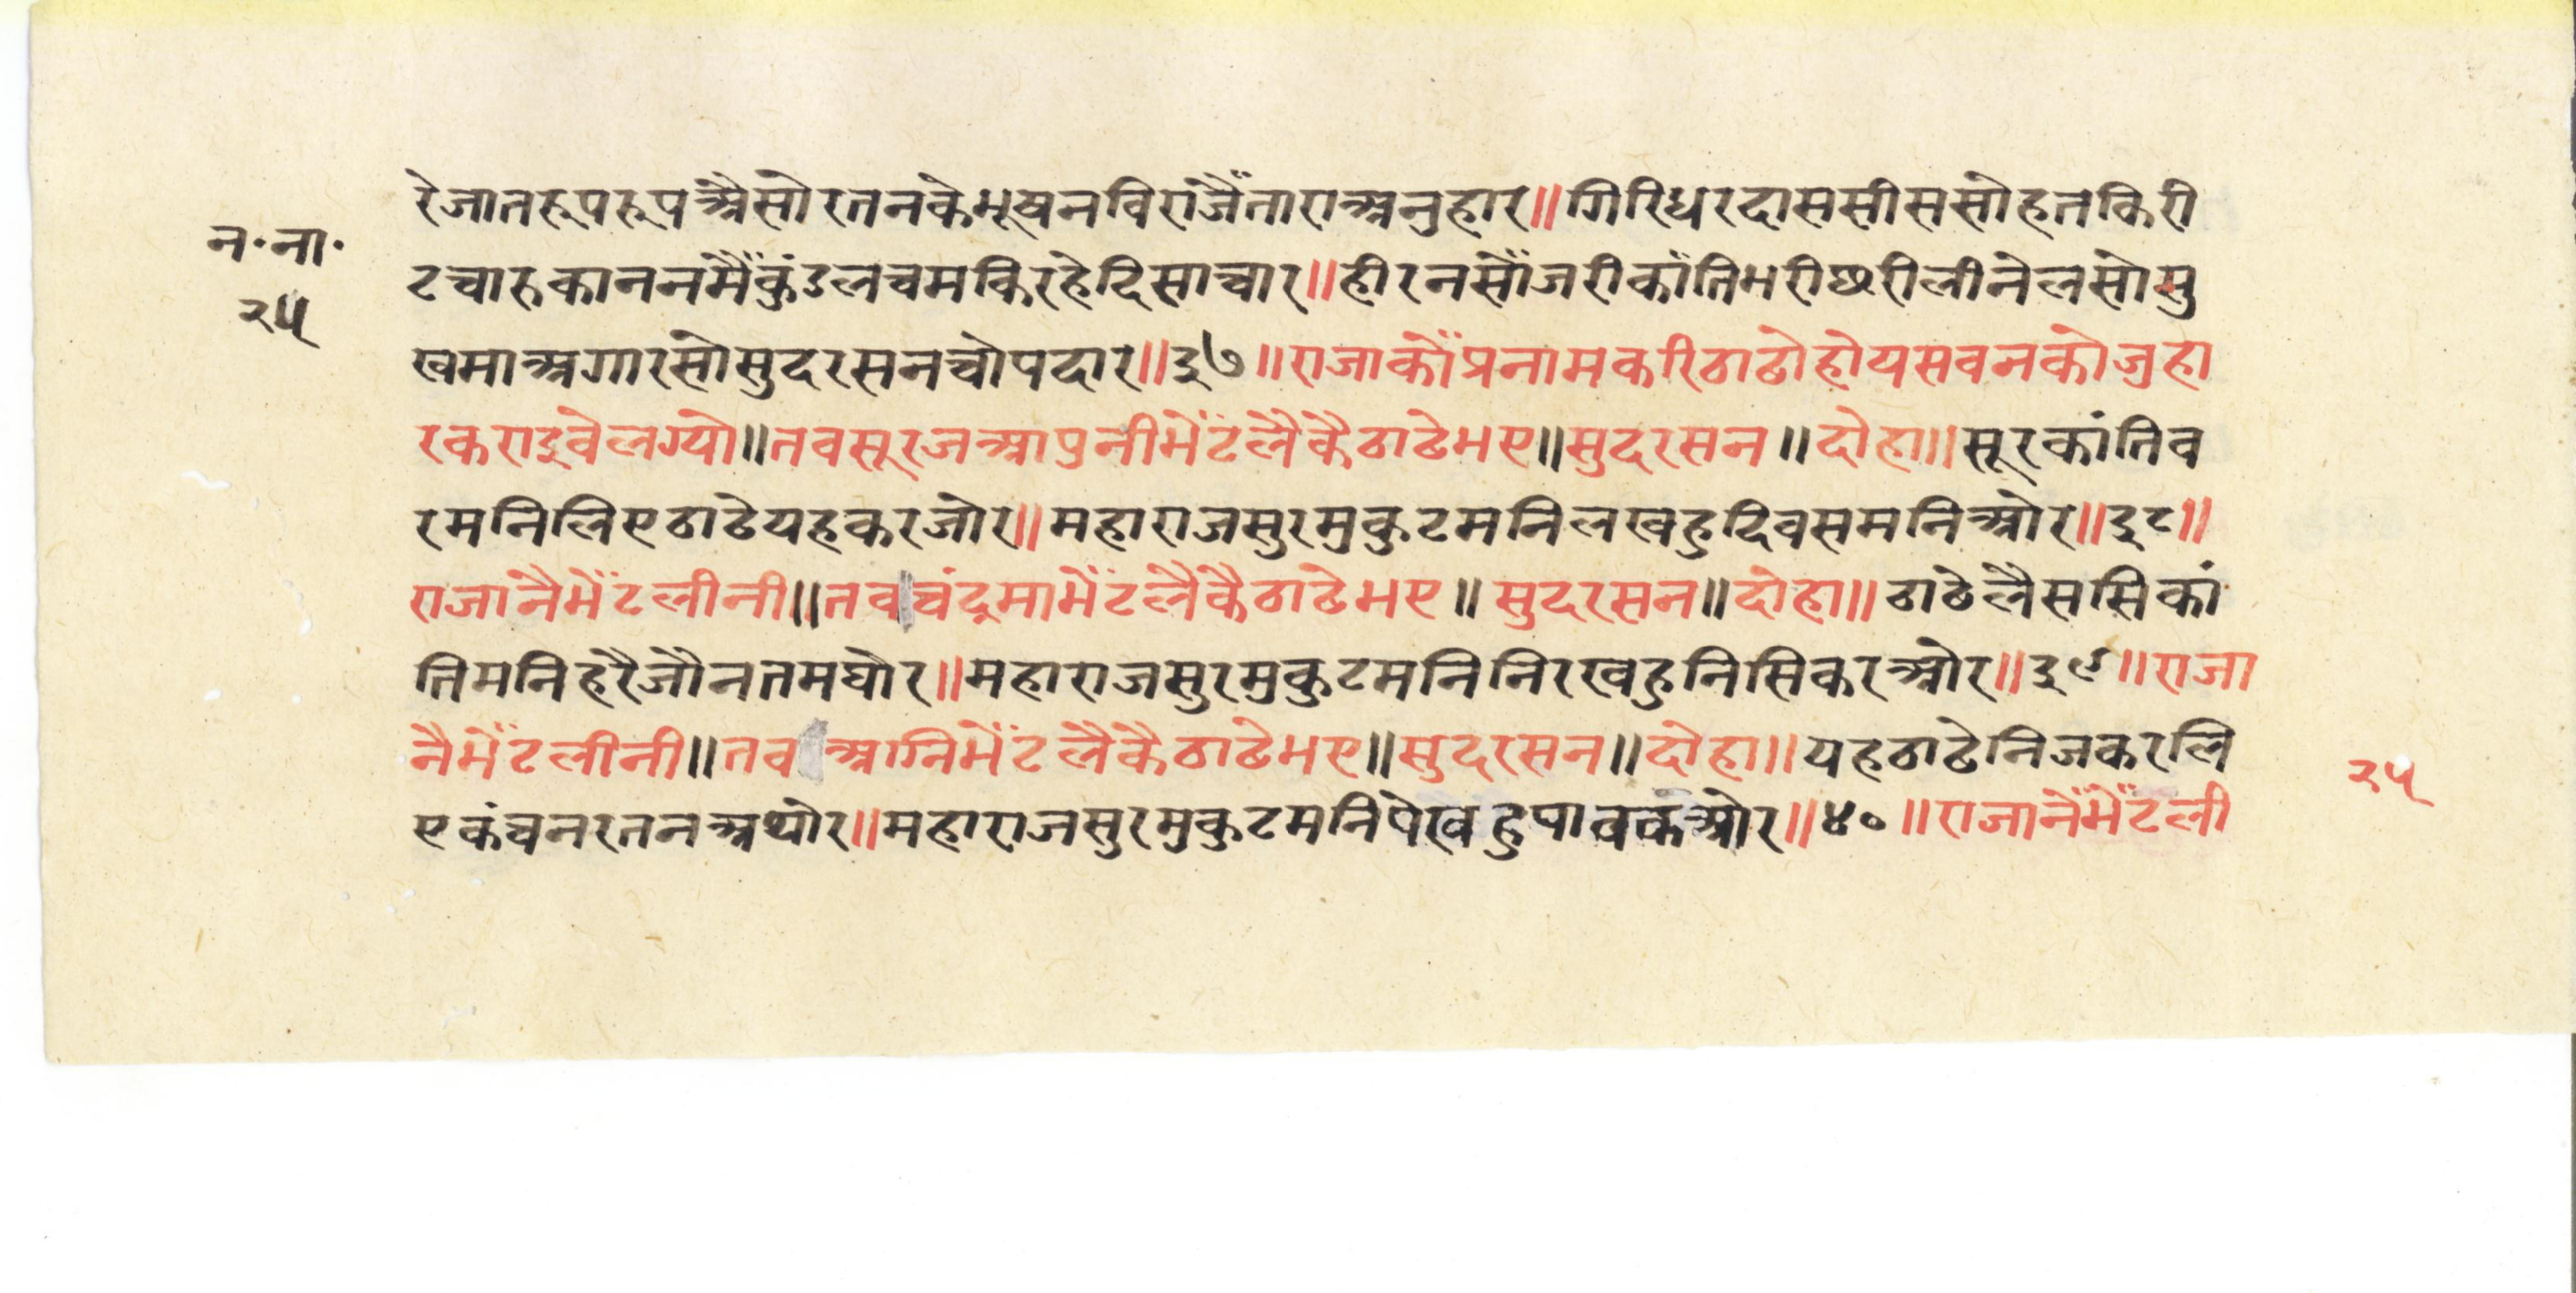 न॰ना॰
२५
रेजातरूपरूपअैसोरतनकेभूषनविराजैंताराअनुहार॥गिरिधरदाससीससोहतकिरी
टचारुकाननमैंकुंडलचमकिरहेदिसाचार॥हीरनसौंजरीकांतिभरीछरीलीनेलसोसु
खमाअगारसोसुदरसनचोपदार॥३७॥राजाकौंप्रनामकरिठाढोहोयसवनकोजुहा
रकराइवेलग्यो॥तवसूरजआपुनीभेंटलैकैठाढेभए॥सुदरसन॥दोहा॥सूरकांतिव
रमनिलिएठाढेयहकरजोर॥महाराजसुरमुकुटमनिलखहुदिवसमनिओर॥३८॥
राजानैभेंटलीनी॥तवचंद्रमाभेंटलैकैठाढेभए॥सुदरसन॥दोहा॥ठाढेलैससिकां
तिमनिहरैजौनतमघोर॥महाराजसुरमुकुटमनिनिरखहुनिसिकरओर॥३९॥राजा
नैभेंटलीनी॥तवअगनिभेंटलैकैठाढेभए॥सुदरसन॥दोहा॥यहठाढेनिजकरलि
एकंचनरतनअथोर॥महाराजसुरमुकुटमनिपेखहुपावकओर॥४०॥राजानैंभेंटली
२५